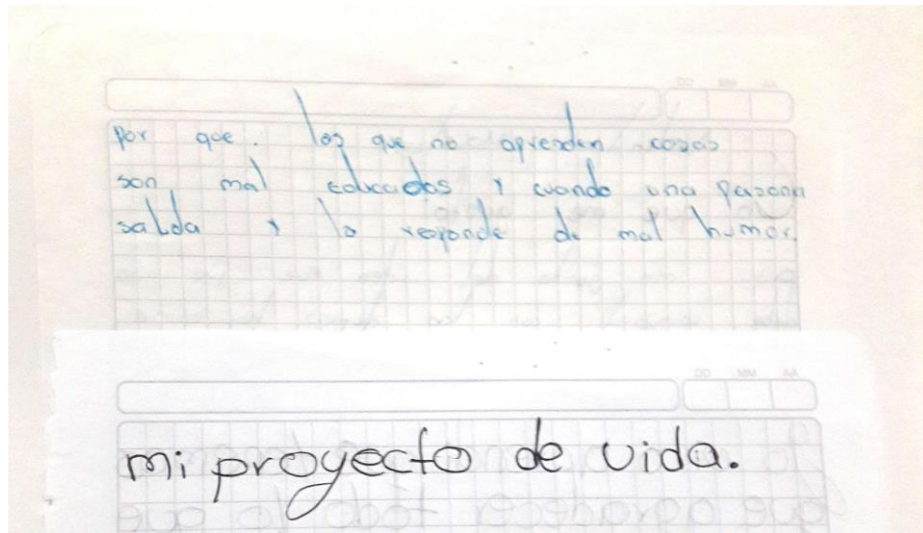 por que. los que no aprenden cosas
son mal educados y cuando una pazona
salda y lo responde de mal humor.
mi proyecto de vida.